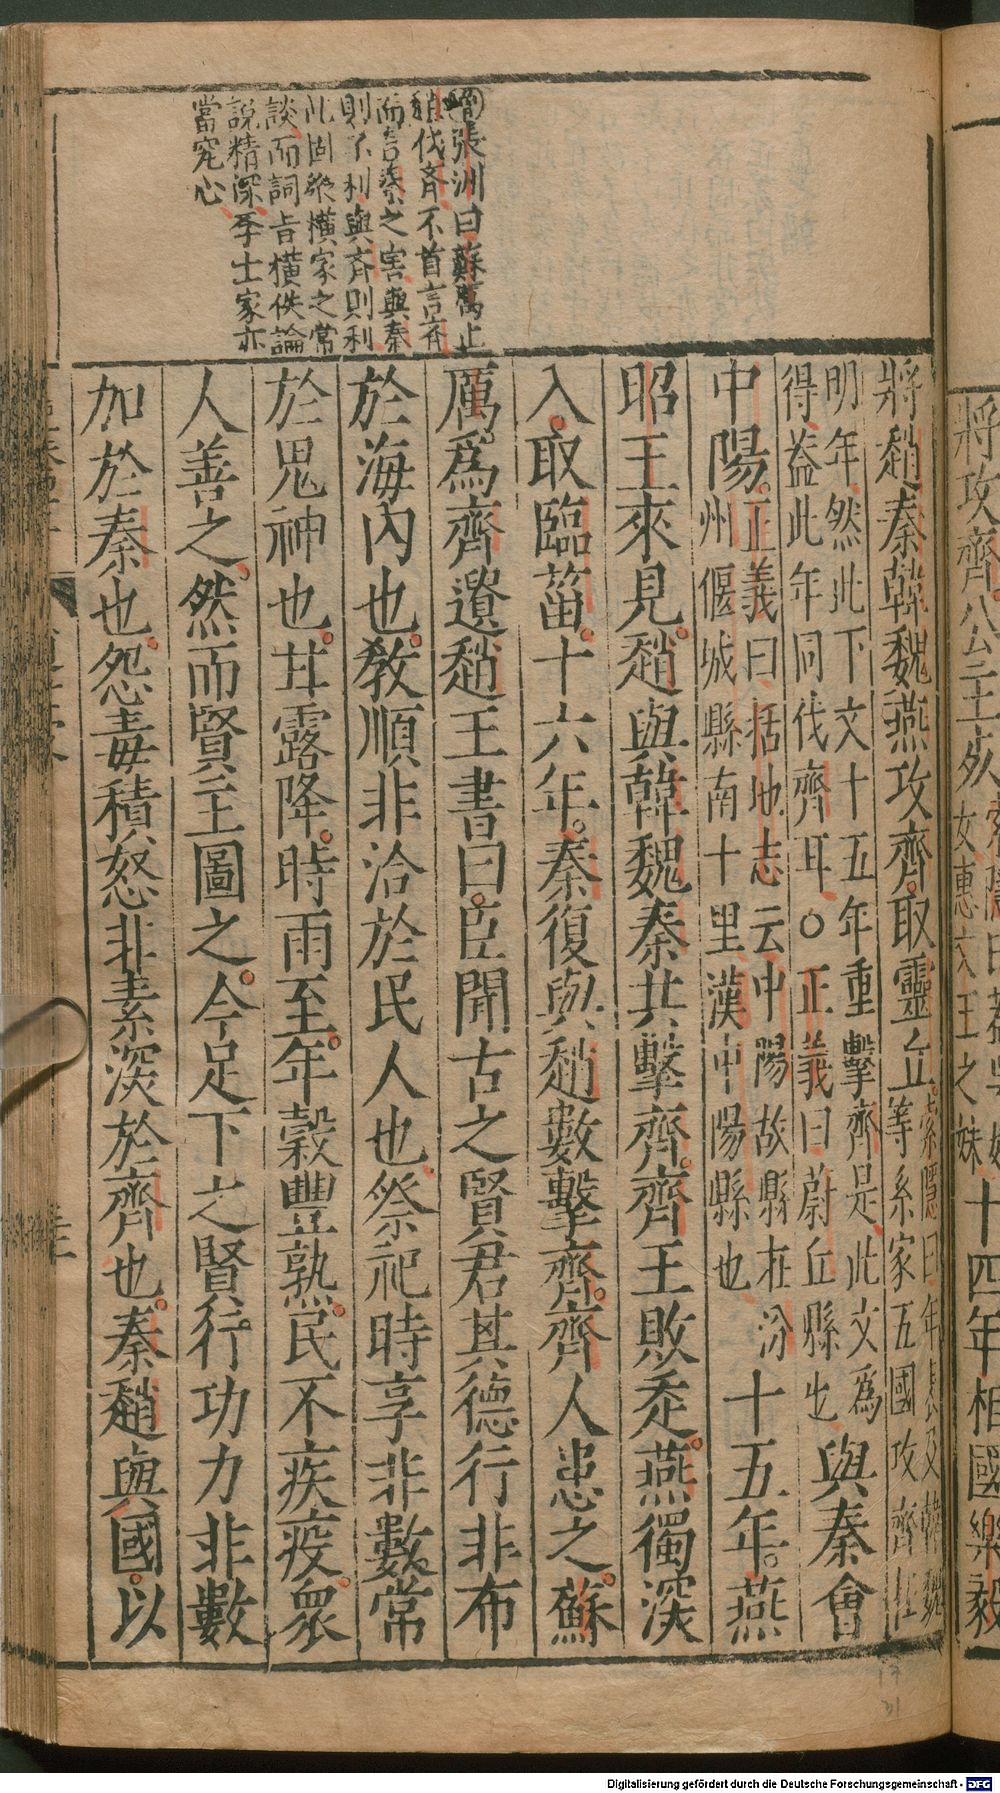 將攻齊公主死
女惠文王之妹
十四年相國樂毅
增張洲曰蘇厲止
趙伐齊不首言齊
而言秦之害與秦
則不利與齊則利
此固縱橫家之常
談而詞旨橫佚論
說精深學士家亦
當究心
將趙秦韓魏燕攻齊取靈丘
索隱曰年表及韓魏
等系家五國攻齊在
明年然此下文十五年重擊齊是此文為
得蓋此年同伐齊耳○正義曰蔚丘縣也
與秦會
中陽
正義曰括地志云中陽故縣在汾
州偃城縣南十里漢中陽縣也
十五年燕
昭王來見趙與韓魏秦共擊齊齊王敗走燕獨深
入取臨菑十六年秦復與趙數擊齊齊人患之蘇
厲為齊遺趙王書曰臣聞古之賢君其德行非布
於海內也教順非洽於民人也祭祀時享非數常
於鬼神也甘露降時雨至年穀豐熟民不疾疫眾
人善之然而賢主圖之今足下之賢行功力非數
加於秦也怨毒積怒非素深於齊也秦趙與國以
Digitalisierung gefördert durch die Deutsche Forschungsgemeinschaft - DFG